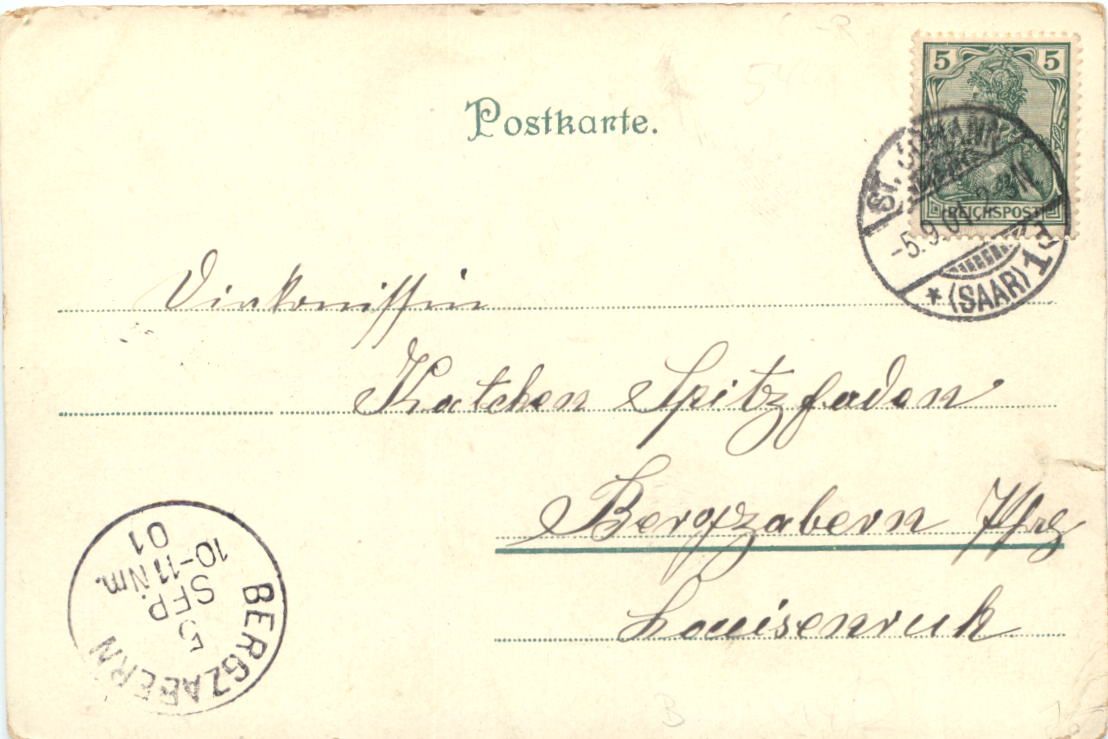 Postkarte.
5 5
REICHSPOST
ST. JOHANN
-5.9.01. 2-3N
* (SAAR) 1d
Diakonissin
Katchen Spitzfaden
Bergzabern Pfalz
Louisenruh
BERGZABERN
5 SEP.
10-11 Nm.
01